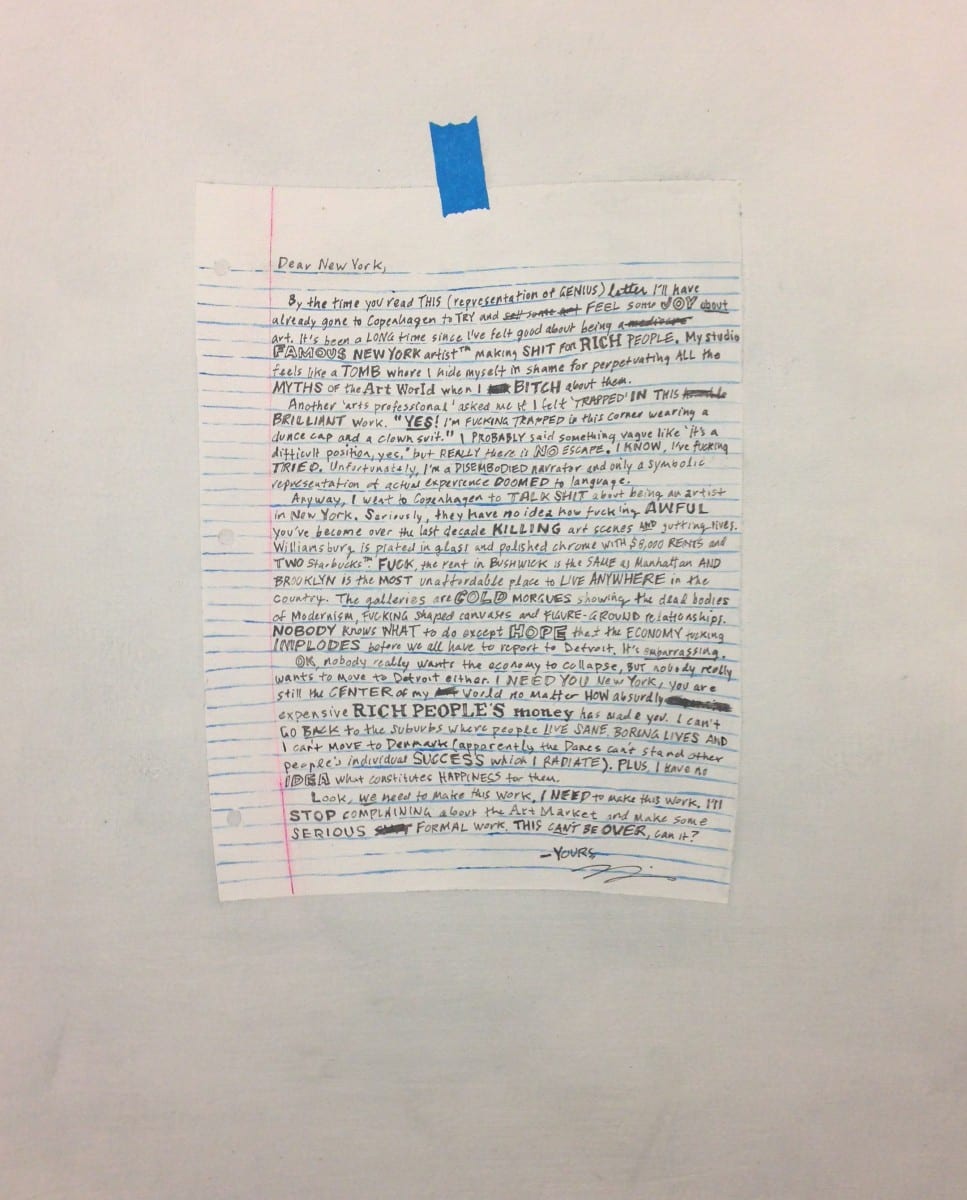 Dear New York,
By the time you read THIS (representation of GENIUS) letter I'll have
already gone to Copenhagen to TRY and sell some art FEEL some JOY about
art. It's been a LONG time since I've felt good about being a mediocre
FAMOUS NEW YORK artist™ making SHIT for RICH PEOPLE. My studio
feels like a TOMB where I hide myself in shame for perpetvating ALL the
MYTHS OF the Art World when I BITCH about them.
Another 'arts professional' asked me if I felt 'TRAPPED' IN THIS
BRILLIANT work. "YES! I'M FUCKING TRAPPED in this corner wearing a
dunce cap and a clown suit." I PROBABLY said something vague like "it's a
difficult position, yes," but REALLY there is NO ESCAPE. I KNOW, I've fucking
TRIED. Unfortunately, I'm a DISEMBODIED narrator and only a symbolic
representation of actual experience DOOMED to language.
Anyway, I went to Copenhagen to TALK SHIT about being an artist
in New York. Seriously, they have no idea how fucking AWFUL
you've become over the last decade KILLING art scenes AND gutting lives.
Williamsburg is plated in glass and polished chrome WITH $8,000 RENTS and
TWO Starbucks™. FUCK, the rent in BUSHWICK is the SAME as Manhattan AND
BROOKLYN IS the MOST unaffordable place to LIVE ANYWHERE in the
country. The galleries are GOLD MORGUES showing the dead bodies
of Modernism, FUCKING shaped canvases and FIGURE-GROUND relationships.
NOBODY KNOWS WHAT to do except HOPE that the ECONOMY fucking
IMPLODES before we all have to report to Detroit. It's embarrassing.
OK, nobody really wants the economy to collapse, BUT nobody really
wants to move to Detroit either. I NEED YOU New York, you are
still the CENTER of my World no Matter HOW absurdly
expensive RICH PEOPLE'S money has made you. I can't
GO BACK to the suburbs where people LIVE SANE, BORING LIVES AND
I can't MOVE to Denmark (apparently the Danes can't stand other
people's individual SUCCESS which I RADIATE). PLUS, I have no
IDEA what constitutes HAPPINESS for them.
Look, we need to make this work, I NEED to make this work. I'll
STOP COMPLAINING about the Art Market and make some
SERIOUS FORMAL work. THIS CAN'T BE OVER, can it?
-YOURS